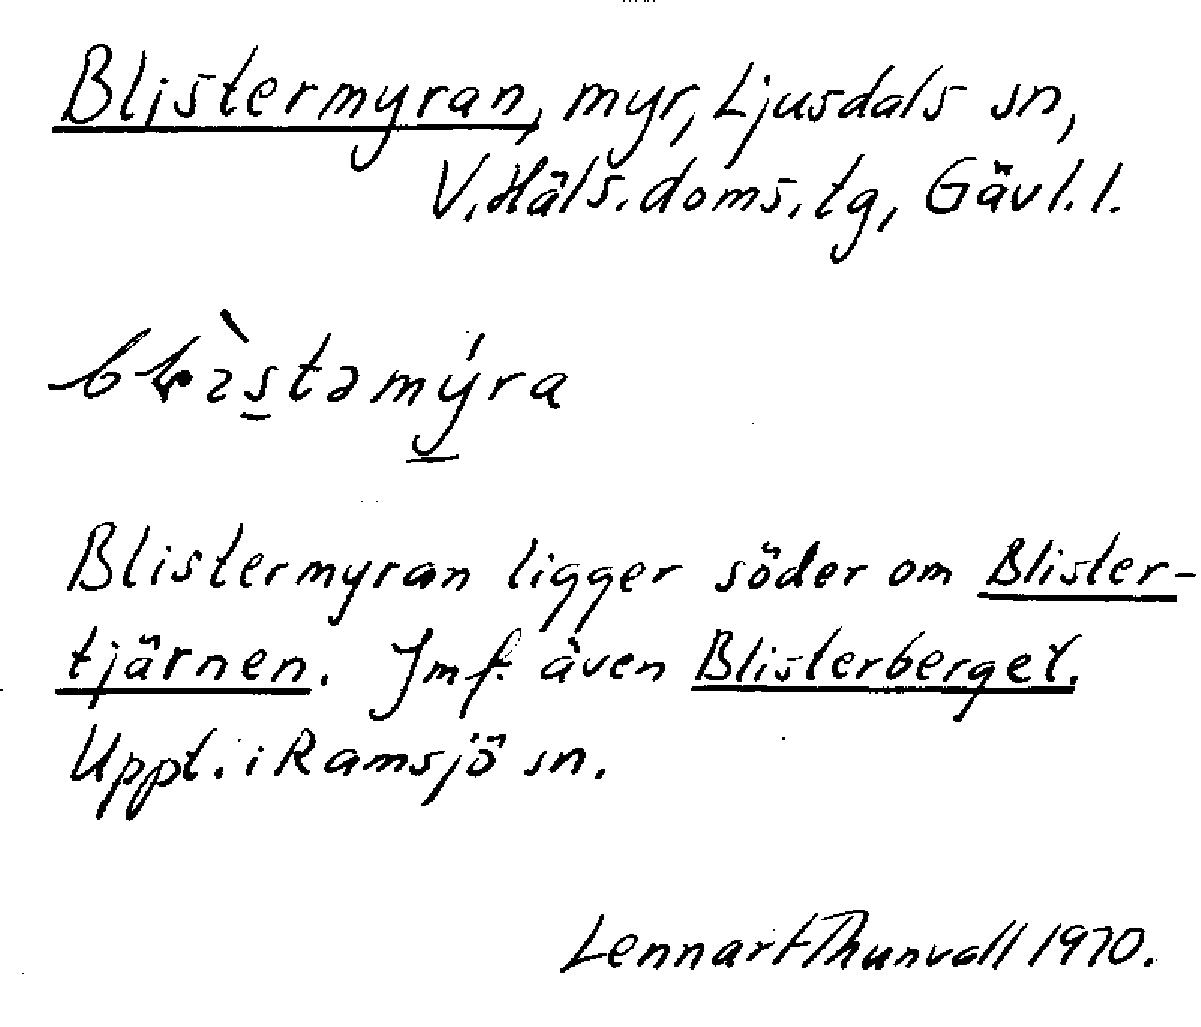 Blistermyran, myr, Ljusdals sn,
V. Häls. doms. tg, Gävl. l.
Blistermyran ligger söder om Blister-
tjärnen. Jmf. även Blisterberget.
Uppt. i Ramsjö sn.
Lennart Thunvall 1970.